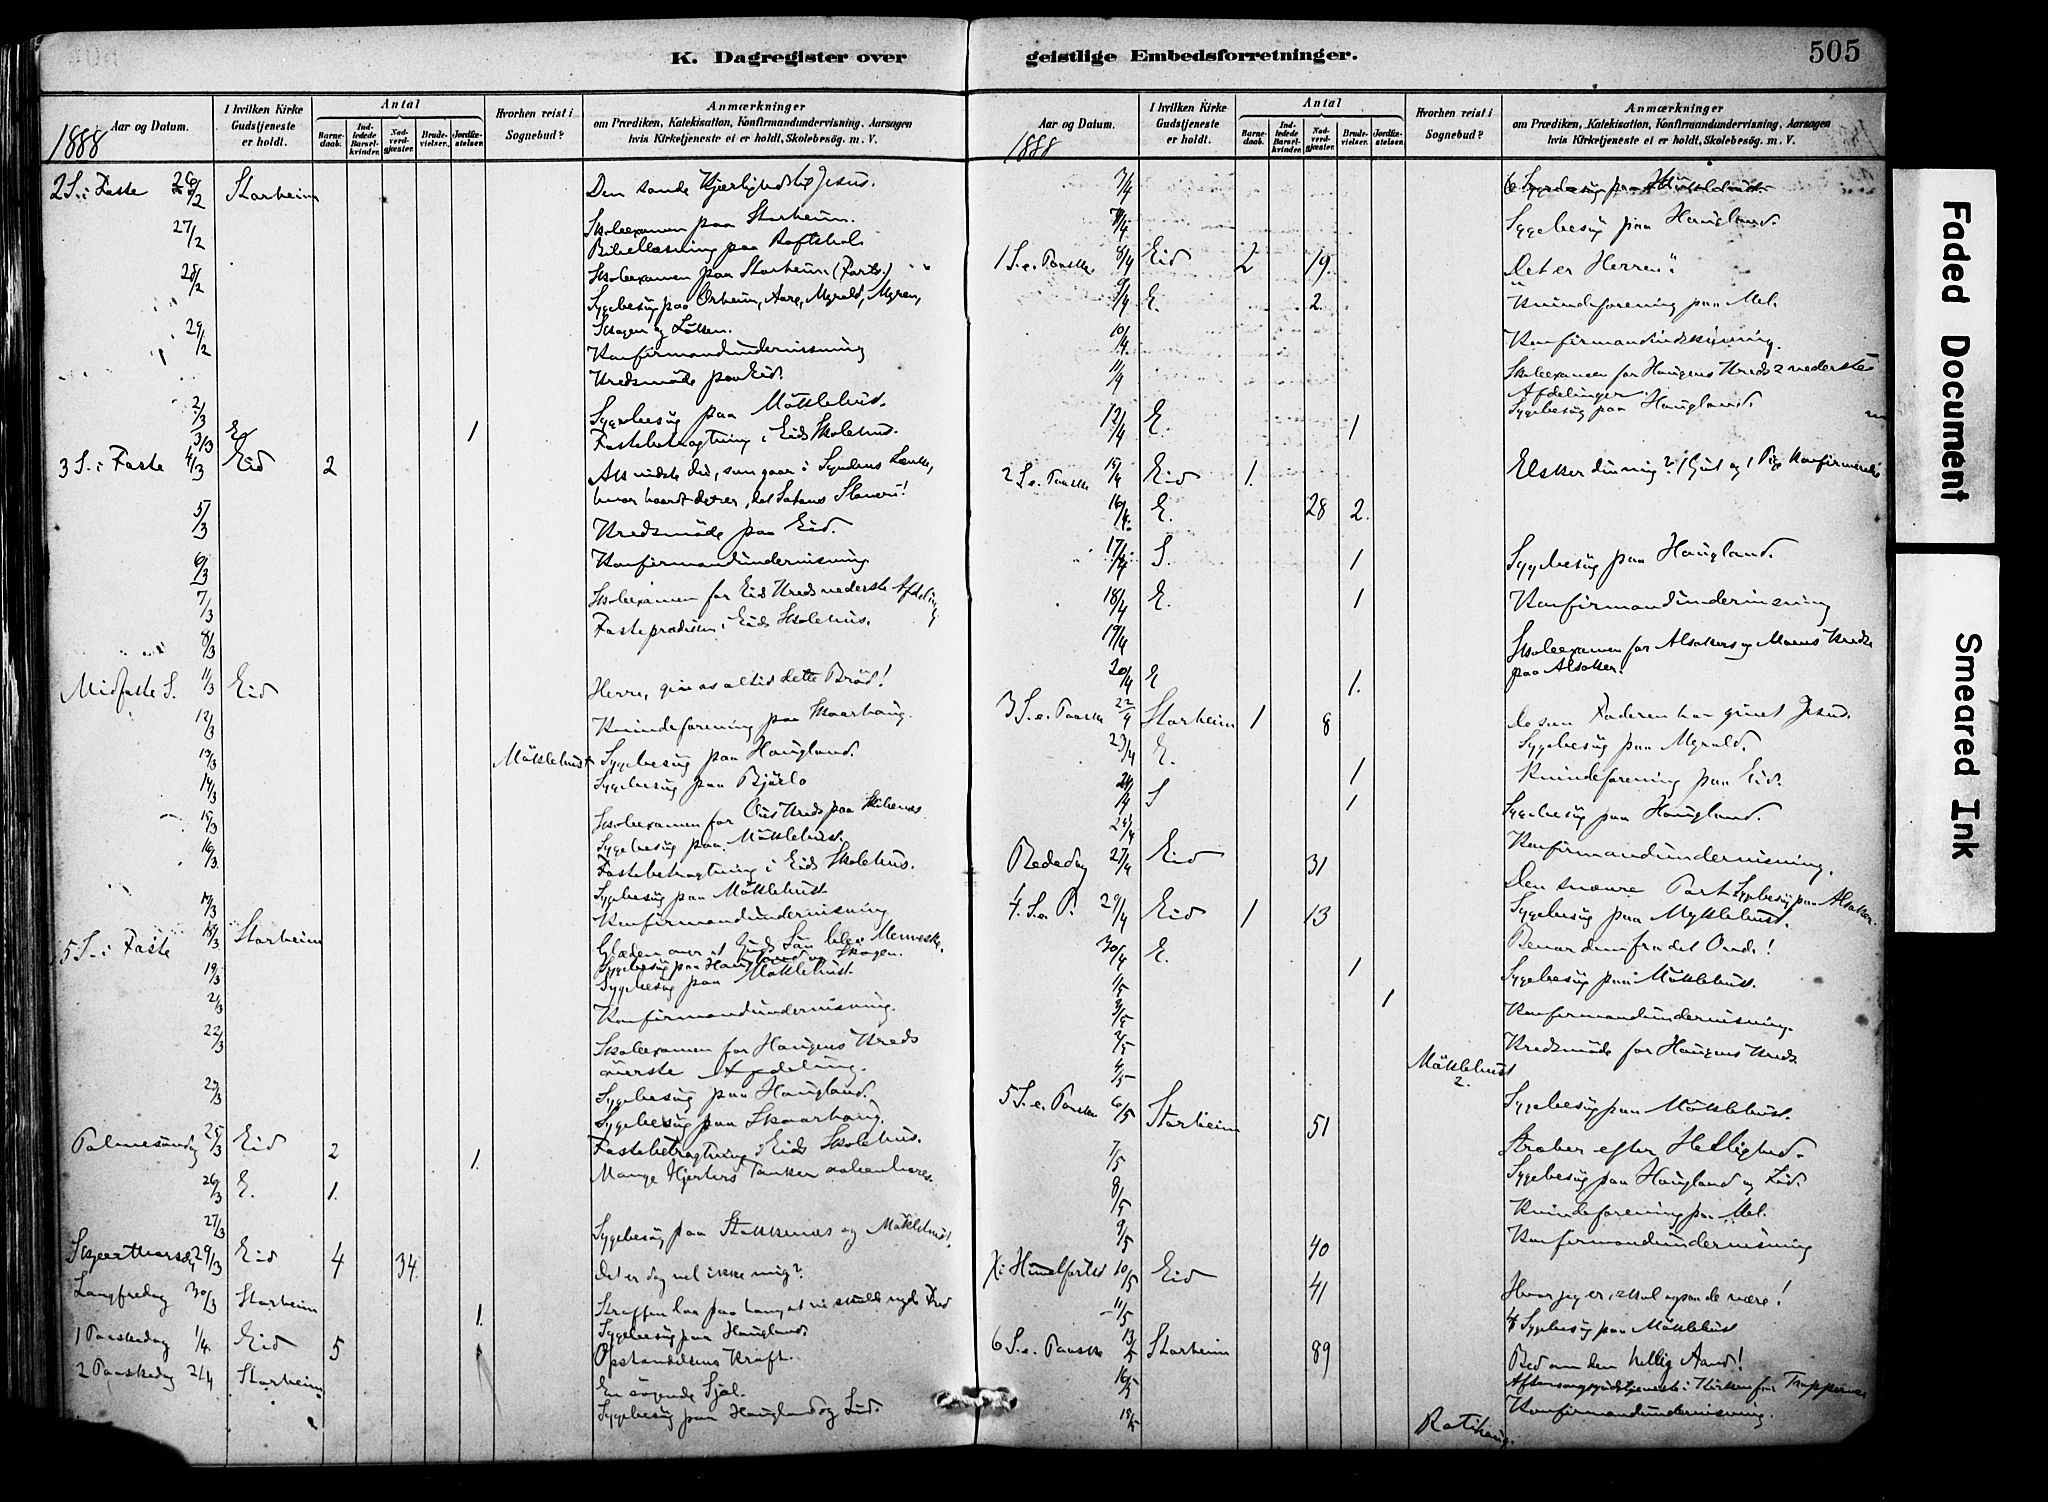 K. Dagregister over
Aar og Datum.
I hvilken Kirke Gudstjeneste er holdt.
Antal
Barnedaab.
Indledede Barselkvinder.
Nadverdgjæster.
Brudevielser.
Jordfæstelser.
Hvorhen reist i Sognebud?
Anmærkninger
om Prædiken, Katekisation, Konfirmandundervisning, Aarsagen
hvis Kirketjeneste ei er holdt, Skolebesøg. m. V.
1888
2 S. i Faste 26/2 Starheim Den sande Kjærlighed til Jesus.
27/2 Skoleexamen paa Starheim.
Bibellæsning paa
28/2 Skoleexamen paa Starheim (Forts.)
Sygebesøg paa Orheim, Aare, Myrold, Myren,
29/2 Skagen og
Konfirmandundervisning
Kredsmøde paa Eid.
2/3 Sygebesøg paa Möklebust.
3/3 E 1 Fastebetragtning i Eids Skolehus.
3 S. i Faste 4/3 Eid 2 du, som gaar i Syndens Lænke,
hvor haardt det er, det Satans Slaveri!
5/3 Kredsmøde paa Eid.
6/3 Konfirmandundervisning
7/3 Skoleexamen for Eids Kreds nederste Afdeling
8/3 Fasteprædiken i Eids Skolehus.
Midfaste S. 11/3 Eid Herre, giv os altid dette Brød!
12/3 Kvindeforening paa Skaarhaug.
13/3 Möklebust Sygebesøg paa Haugland.
14/3 Sygebesøg paa Bjørlo
15/3 Skoleexamen for Kreds paa
16/3 Sygebesøg paa Möklebust.
Fastebetragtning i Eids Skolehus.
Sygebesøg paa Möklebust
17/3 Konfirmandundervisning
5 S. i Faste 18/3 Starheim Glæden over at Guds Søn blev Menneske.
Sygebesøg paa Haugland og Skagen.
19/3 Sygebesøg paa Möklebust.
Konfirmandundervisning.
22/3 Skoleexamen for Haugens Kreds
øverste Afdeling.
23/3 Sygebesøg paa Haugland.
Sygebesøg paa Skaarhaug.
Palmesøndag 25/3 Eid 2 1. Fastebetragtning i Eids Skolehus.
26/3 E. 1. Mange Hjerters Tanker aabenbares.
27/3 Sygebesøg paa Stokkenes og Möklebust.
Skjærthorsd. 29/3 Eid 4 34. Det er dog vel ikke mig?
Langfredag 30/3 Starheim 1. Straffen laa paa ham, at vi skulde nyde Fred
Sygebesøg paa Haugland.
1 Paaskedag 1/4 Eid 5 Opstandelsens Kraft.
2 Paaskedag 2/4 Starheim En søgende Sjæl.
Sygebesøg paa Haugland og Eid.
geistlige Embedsforretninger.
505
Aar og Datum.
I hvilken Kirke Gudstjeneste er holdt.
Antal
Barnedaab.
Indledede Barselkvinder.
Nadverdgjæster.
Brudevielser.
Jordfæstelser.
Hvorhen reist i Sognebud?
Anmærkninger
om Prædiken, Katekisation, Konfirmandundervisning, Aarsagen
hvis Kirketjeneste ei er holdt, Skolebesøg. m. V.
1888
7/4
7/4 Sygebesøg paa Haugland.
1 S. e. Paaske 8/4 Eid 2 19. "Det er Herren".
9/4 E. 2. Kvindeforening paa Mel.
10/4 Konfirmandindskrivning.
11/4 Skoleexamen for Haugens Kreds 2 nederste
Afdelinger.
12/4 E. 1 Sygebesøg paa Haugland.
2 S. e. Paaske 15/4 Eid 1. Elsker du mig? 1 Gut og 1 Pige konfirmerede
16/4 E. 28 2.
17/4 S. 1 Sygebesøg paa Haugland.
18/4 E. 1 Konfirmandundervisning
19/4 Skoleexamen for Alsakers og Moens Kredse
paa Alsaker.
20/4 E 1.
3 S. e. Paaske 22/4 Starheim 1 8 De som Faderen har givet Jesus.
23/4 E. 1 Sygebesøg paa Myrold.
24/4 S 1 Kvindeforening paa Eid.
Sygebesøg paa Haugland.
Konfirmandundervisning.
Bededag 27/4 Eid 31 Den snævre Port. Sygebesøg paa Alsaker.
4. S. e. P. 29/4 Eid 1 13 Sygebesøg paa Myklebust.
Bevar dem fra det Onde!
30/4 E. 1 Sygebesøg paa Möklebust.
1/5 1
Konfirmandundervisning.
Kredsmøde for Haugens Kreds
4/5 Möklebust 2.
Sygebesøg paa Möklebust.
5 S. e. Paaske 6/5 Starheim 51 Straber efter Hellighed.
7/5 Sygebesøg paa Haugland og Eid.
8/5 Kvindeforening paa Mel.
9/5 40 Konfirmandundervisning
Xi Himelfartsd 10/5 Eid 41 Hvor jeg er, skal ogsaa de være!
11/5 Sygebesøg paa Möklebust
6 S. e. Paaske 13/5 Starheim 89 Bed om den hellig Aand!
16/5 Aftensangsgudstjeneste i Kirken for Tropperne
18/5 Konfirmandundervisning.
Faded Document
Smeared Ink